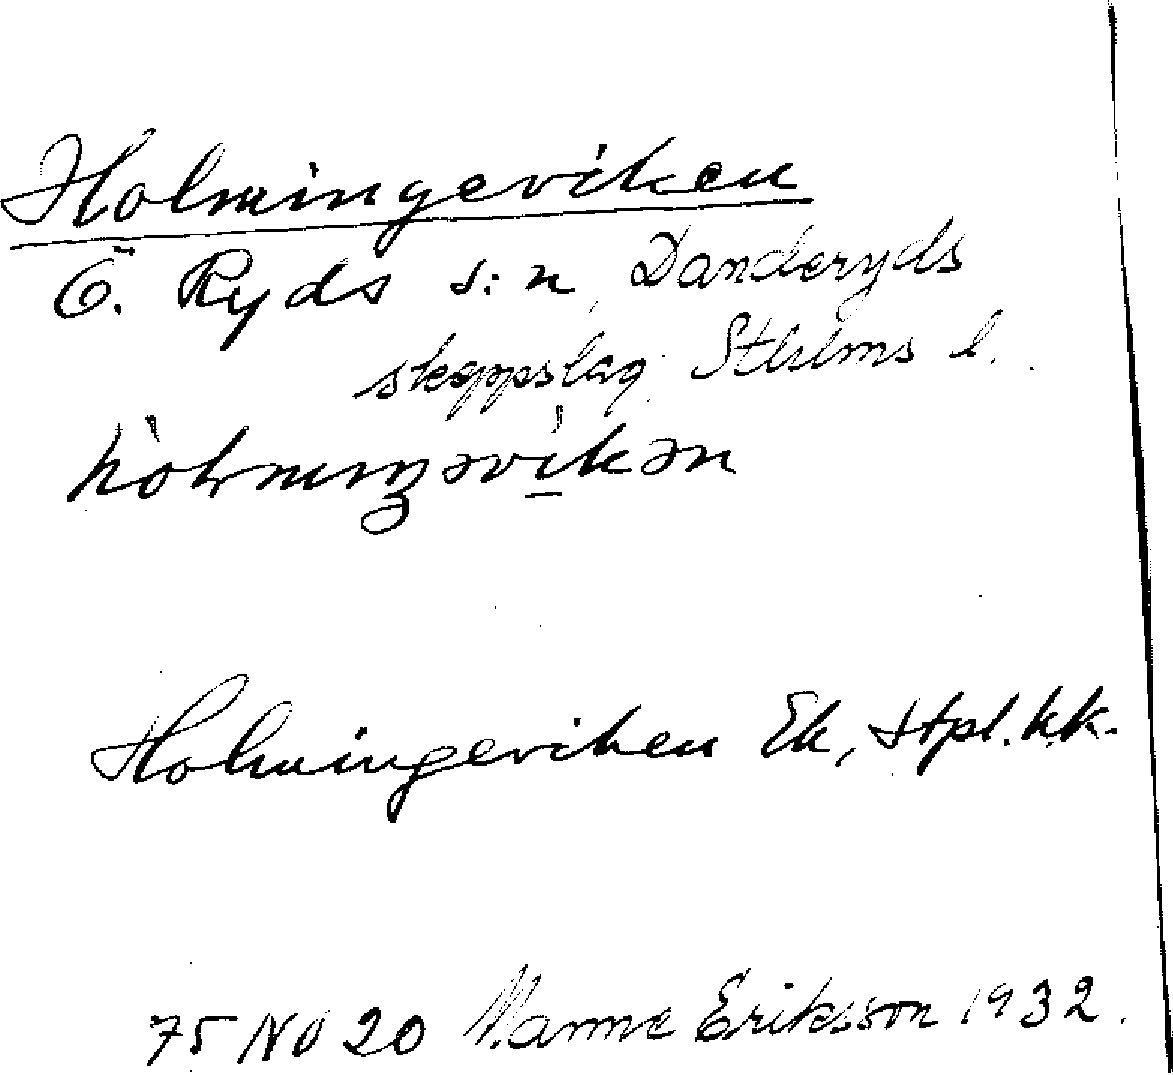 Holmingeviken
Ö. Ryds s:n, Danderyds
skeppslag, Sthlms l.
Holmingeviken Ek, stpl. k.k.
75 NO 20 Manne Eriksson 1932.